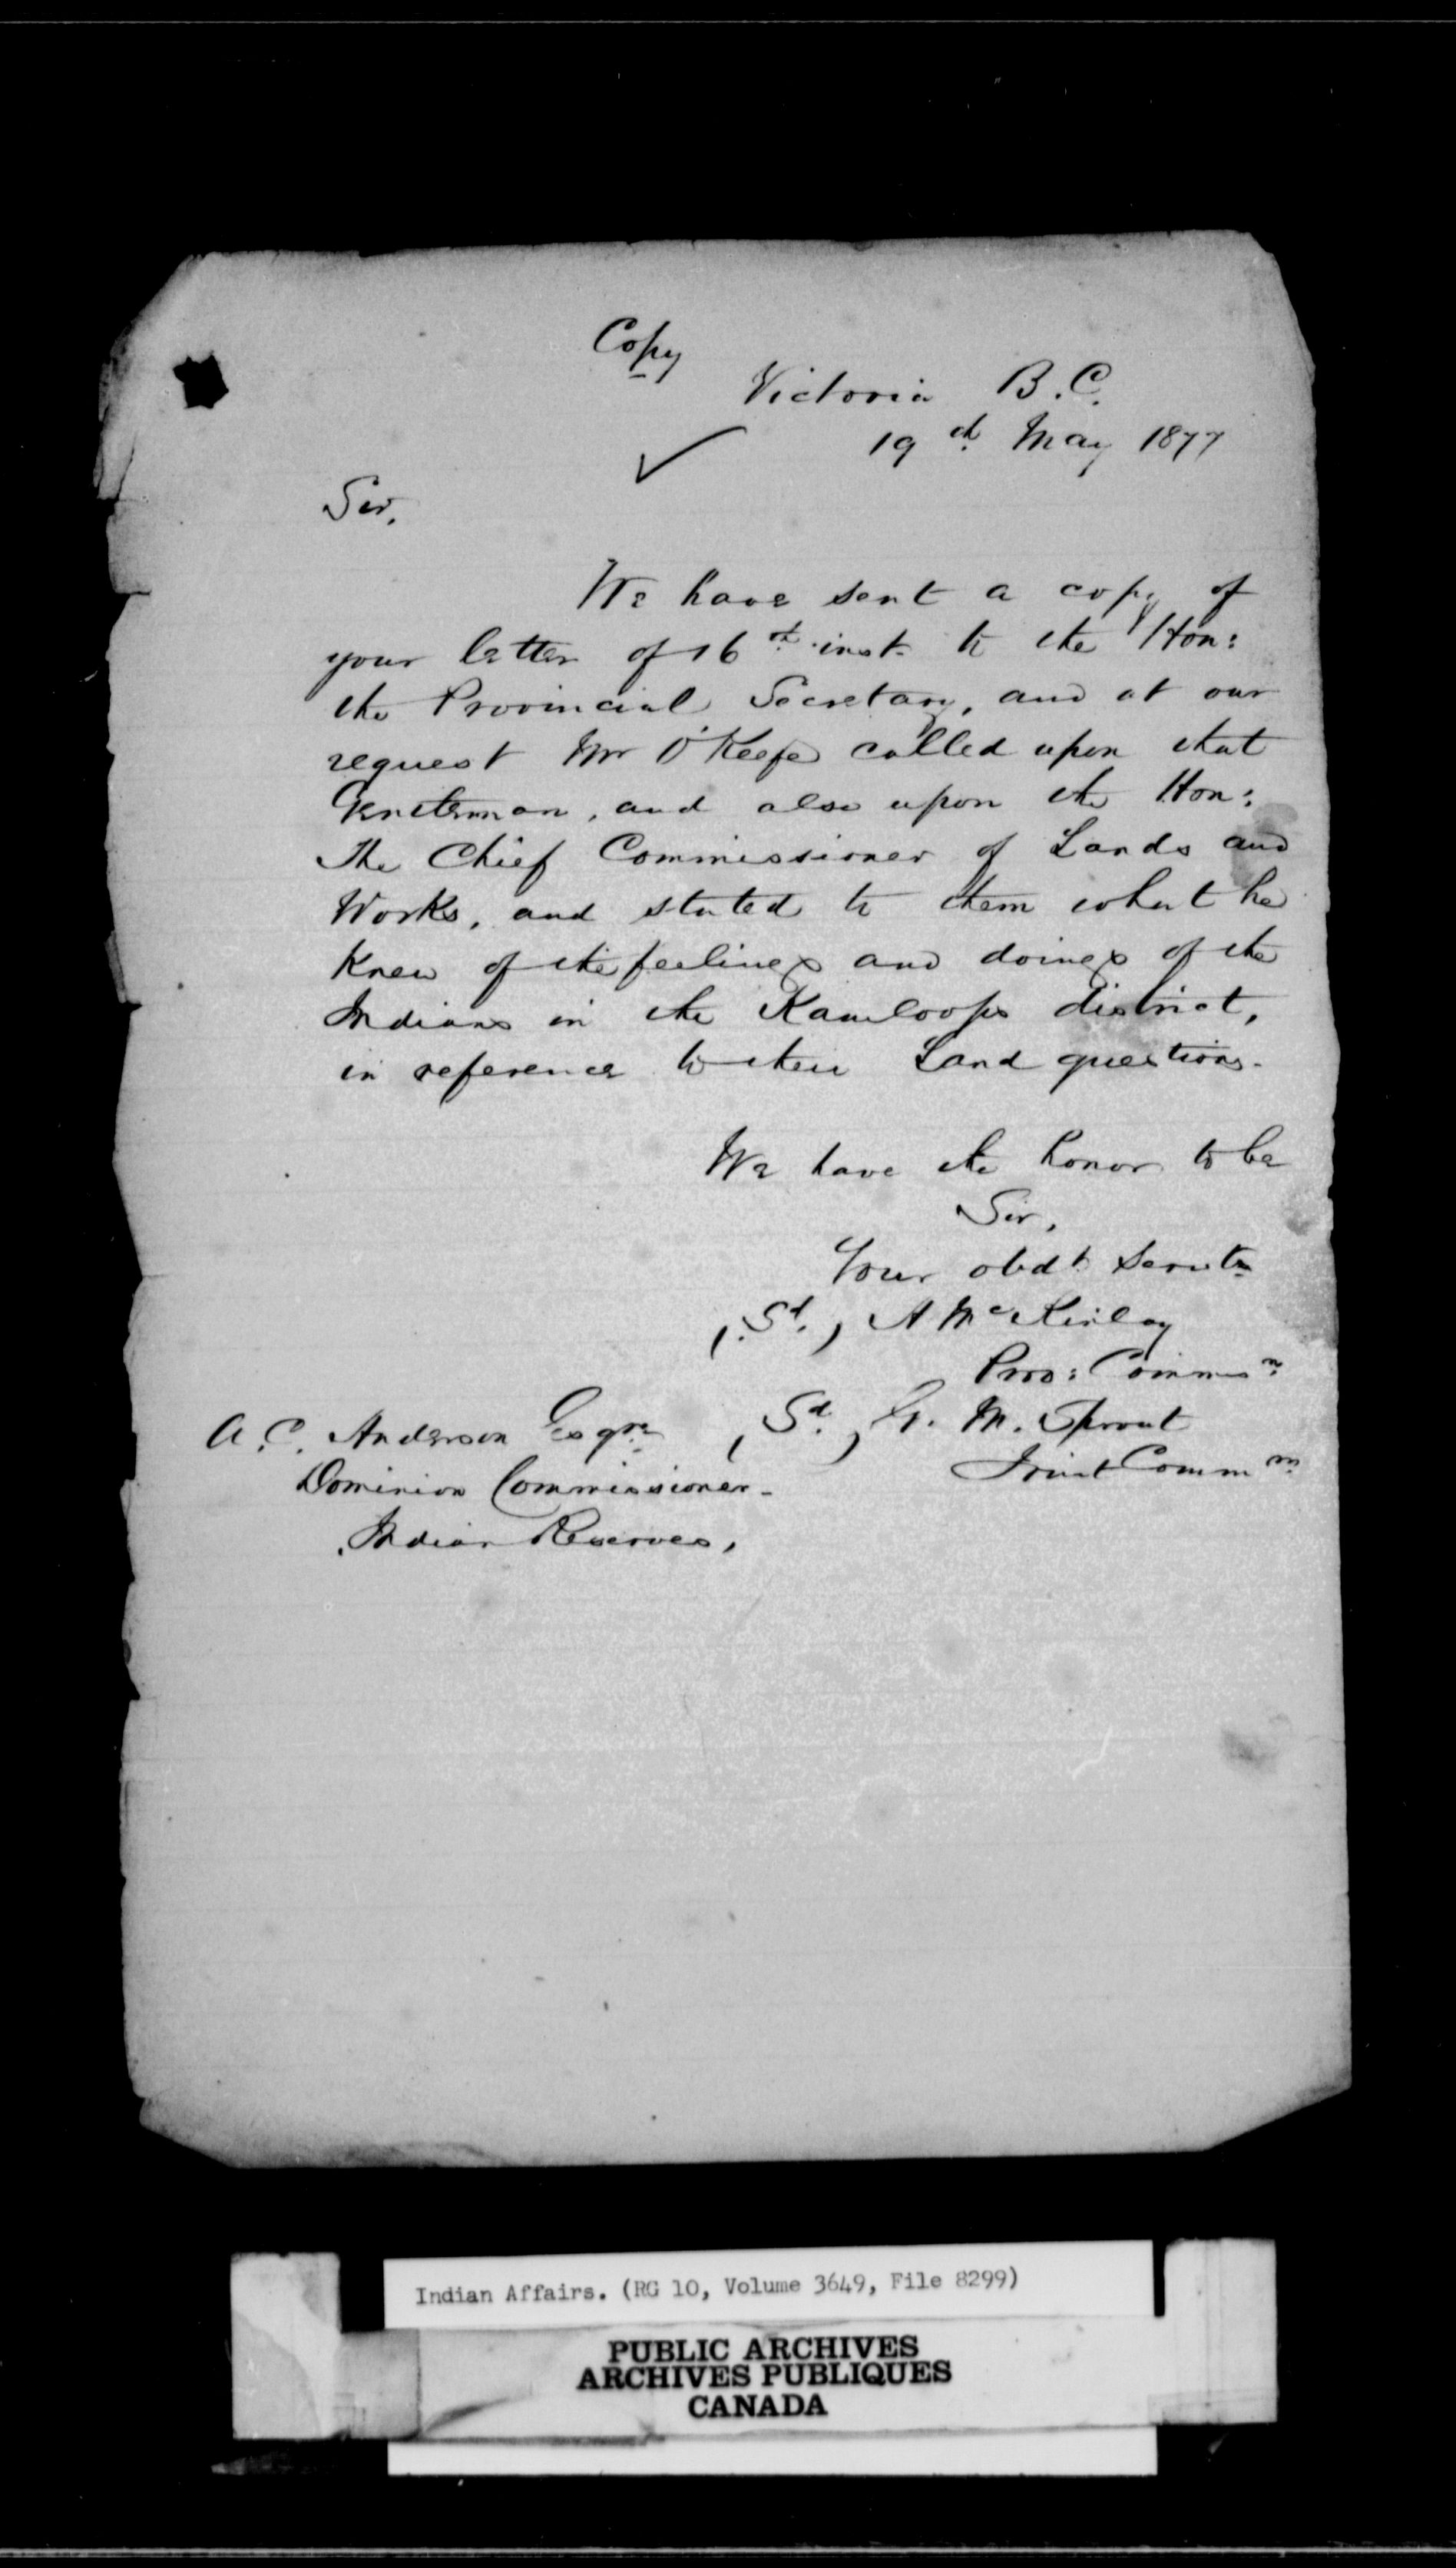 Copy
Victoria B.C.
19th May 1877
Sir,
We have sent a copy of
your letter of 16th inst. to the Hon:
the Provincial Secretary, and at our
request Mr O'Keefe called upon that
Gentleman, and also upon the Hon:
The Chief Commissioner of Lands and
Works, and stated to them what he
knew of the feelings and doings of the
Indians in the Kamloops district,
in reference to their Land questions.
We have the honor to be
Sir,
Your obdt. Servts
(Sd.) A McKinlay
Prov: Commsn.
(Sd.) G. M. Sproat
Joint Commn.
A.C. Anderson Esqre.
Dominion Commissioner.
Indian Reserves,
Indian Affairs. (RG 10, Volume 3649, File 8299)
PUBLIC ARCHIVES
ARCHIVES PUBLIQUES
CANADA